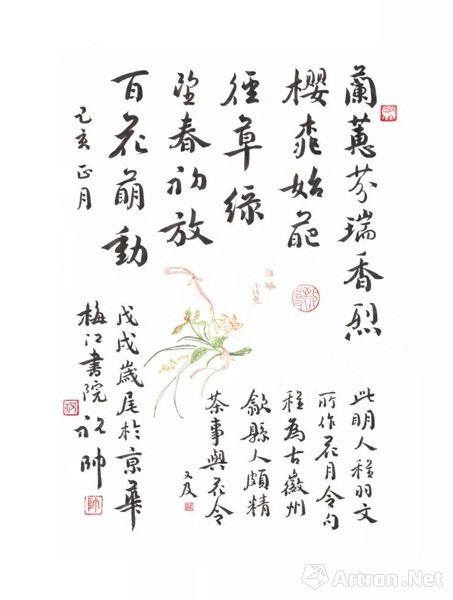 蘭蕙芬瑞香烈
櫻桃始葩
徑草綠
望春初放
百花萌動
己亥正月
戊戌歲尾於京華
梅江書院祝帥
此明人程羽文
所作花月令句
程為古徽州
歙縣人頗精
茶事與花令
又及
Artron.Net